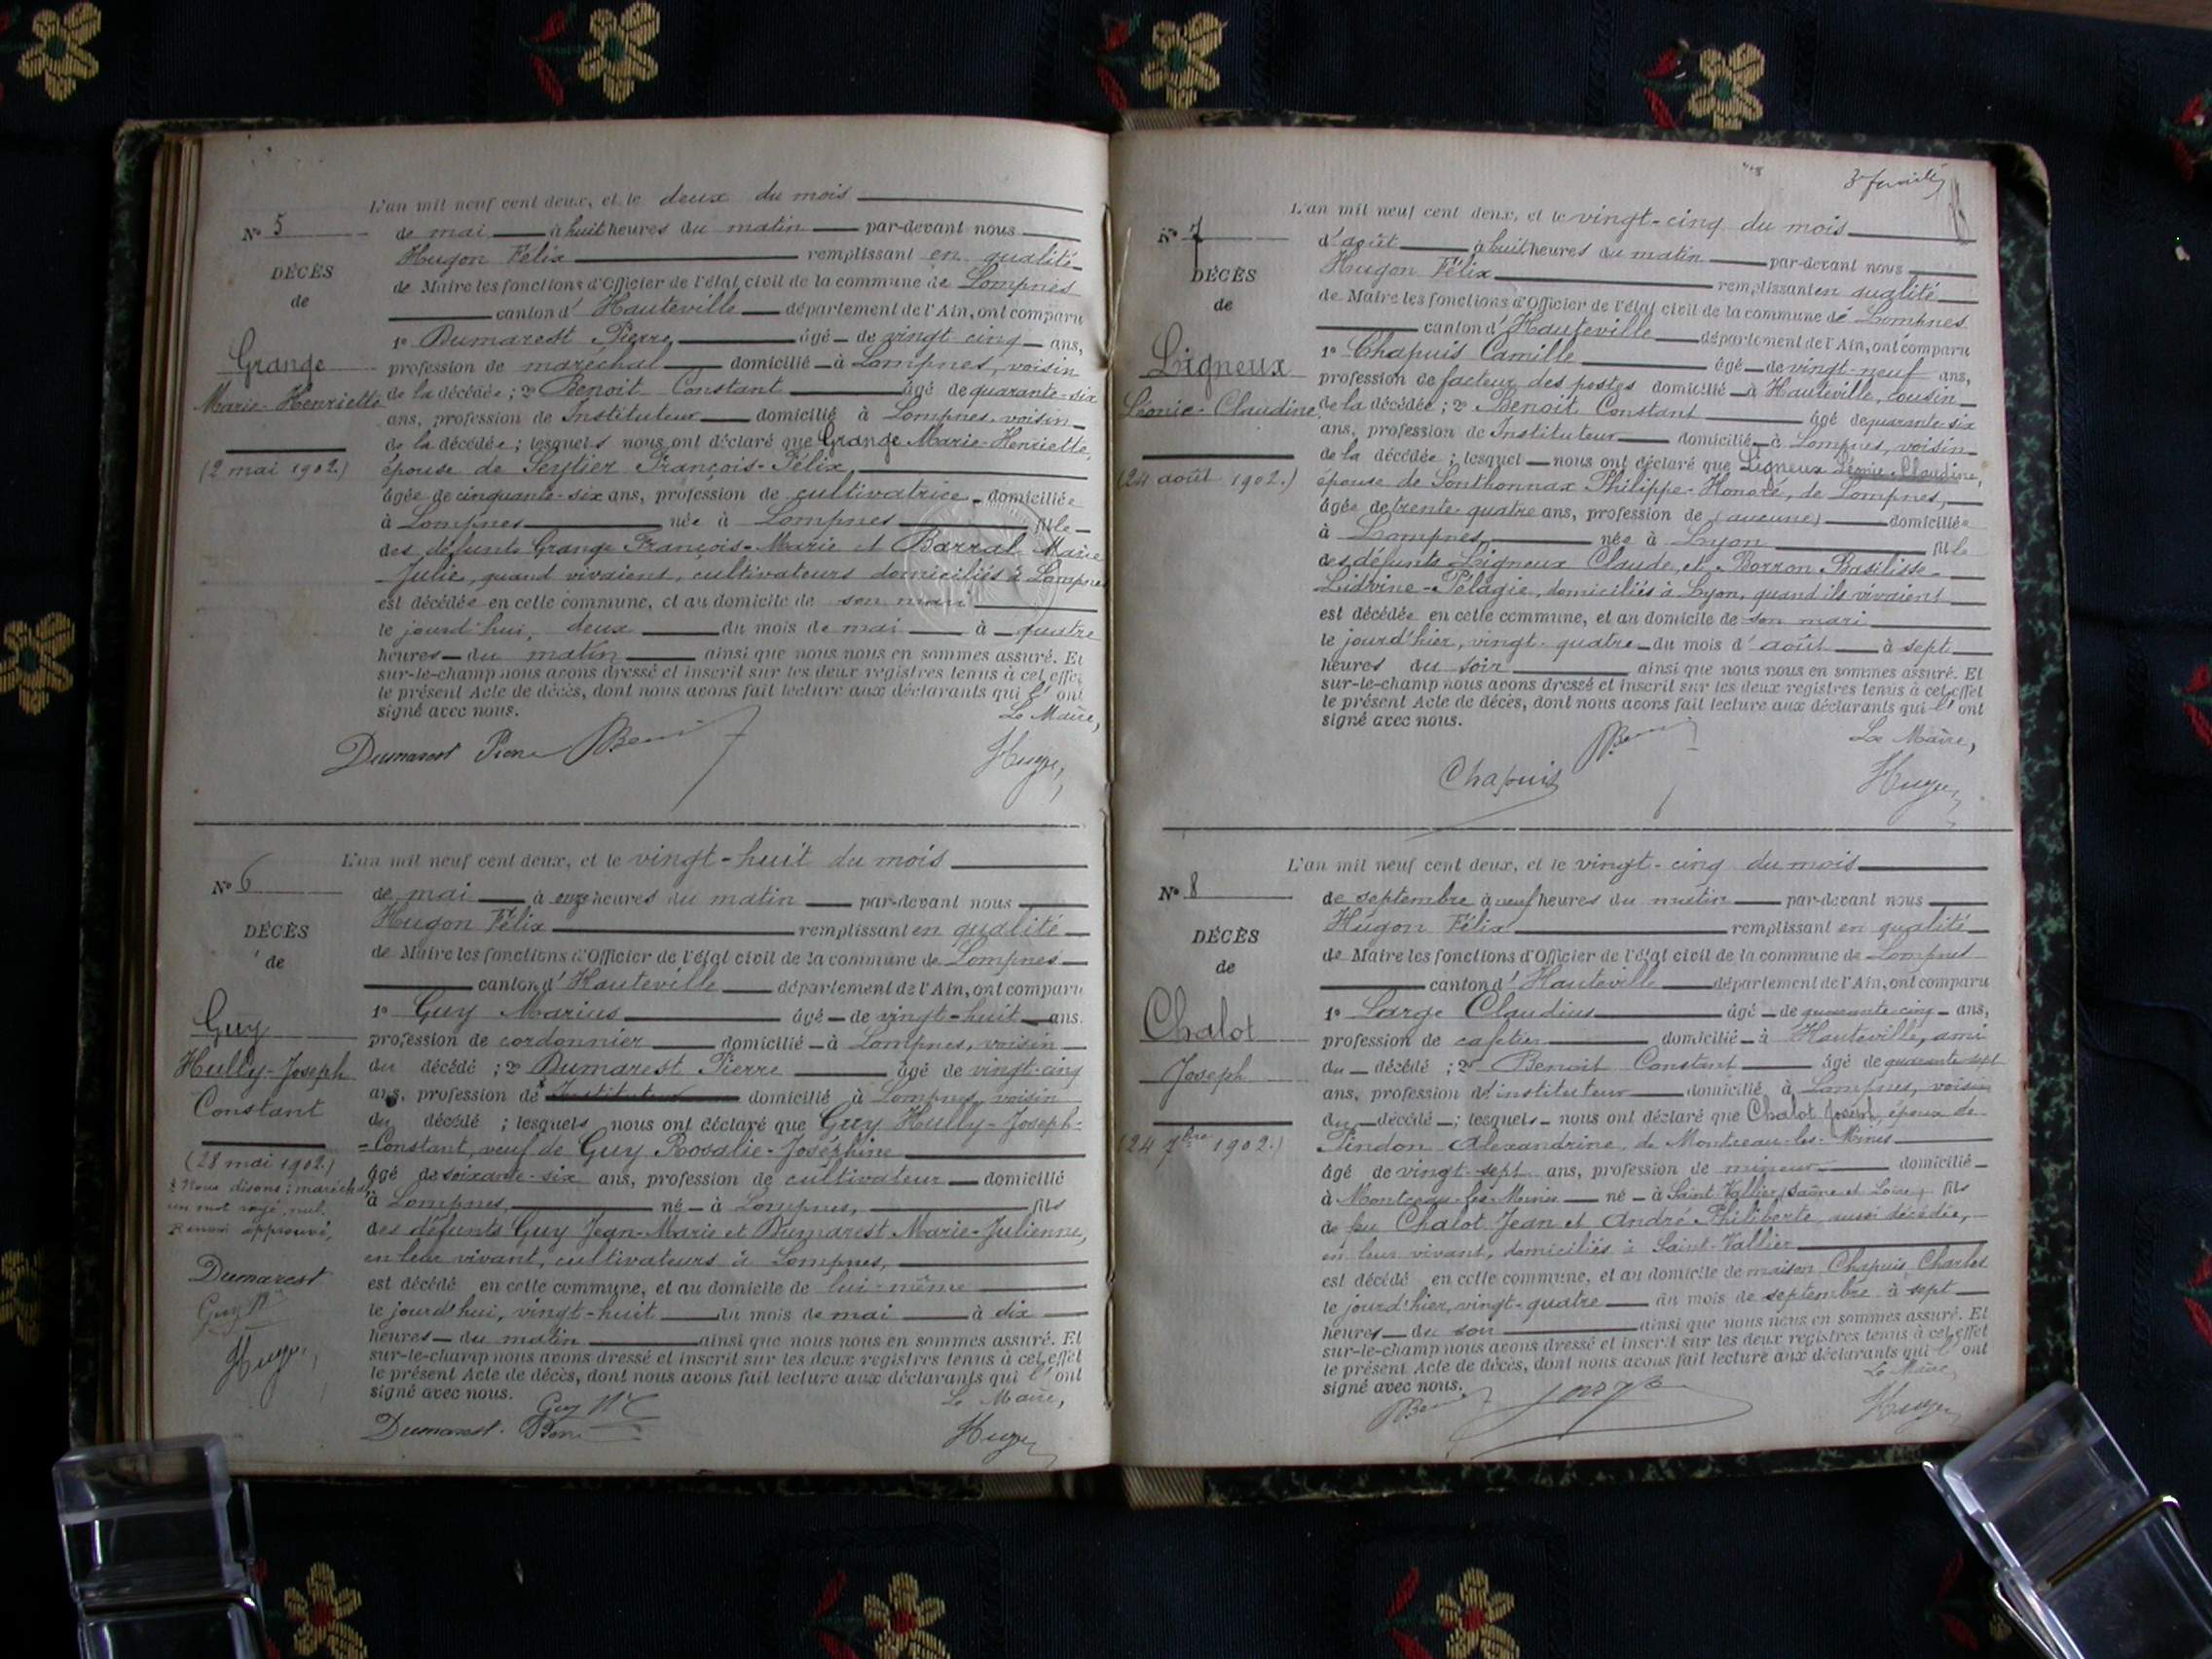 L'an mil neuf cent deux, et le deux du mois
N° 5
de mai à huit heures du matin par-devant nous
Hugon Félix remplissant en qualité
DÉCÈS
de Maire les fonctions d'Officier de l'état civil de la commune de Lompnes
de
canton d'Hauteville département de l'Ain, ont comparu
1° Dumarest Pierre, âgé de vingt cinq ans,
Grange
profession de maréchal domicilié à Lompnes, voisin
Marie-Henriette
de la décédée ; 2° Benoit Constant âgé de quarante-six
ans, profession de Instituteur domicilié à Lompnes, voisin
de la décédée ; lesquels nous ont déclaré que Grange Marie-Henriette,
(2 mai 1902.)
épouse de Seytier François-Félix,
âgée de cinquante-six ans, profession de cultivatrice domiciliée
à Lompnes née à Lompnes fille
des défunts Grange François-Marie et Barral Marie
Julie, quand vivaient, cultivateurs domiciliés à Lompnes
est décédée en cette commune, et au domicile de son mari
le jourd'hui, deux du mois de mai à quatre
heures du matin ainsi que nous nous en sommes assuré. Et
sur-le-champ nous avons dressé et inscrit sur les deux registres tenus à cet effet
le présent Acte de décès, dont nous avons fait lecture aux déclarants qui l'ont
signé avec nous.
Le Maire,
Dumarest Pierre
L'an mil neuf cent deux, et le vingt-huit du mois
N° 6
de mai à onze heures du matin par-devant nous
Hugon Félix remplissant en qualité
DÉCÈS
de Maire les fonctions d'Officier de l'état civil de la commune de Lompnes
de
canton d'Hauteville département de l'Ain, ont comparu
1° Guy Marius âgé de vingt-huit ans.
Guy
profession de cordonnier domicilié à Lompnes, voisin
Hully-Joseph
du décédé ; 2° Dumarest Pierre âgé de vingt-cinq
Constant
ans, profession de Instituteur domicilié à Lompnes, voisin
du décédé ; lesquels nous ont déclaré que Guy Hully-Joseph-
Constant, veuf de Guy Rosalie-Joséphine
(28 mai 1902.)
âgé de soixante-six ans, profession de cultivateur domicilié
Nous disons : maréchal
à Lompnes, né à Lompnes, fils
un mot rayé nul.
des défunts Guy Jean-Marie et Dumarest Marie-Julienne,
Renvoi approuvé,
en leur vivant, cultivateurs à Lompnes,
Dumarest
est décédé en cette commune, et au domicile de lui-même
Guy
le jourd'hui, vingt-huit du mois de mai à dix
heures du matin ainsi que nous nous en sommes assuré. Et
sur-le-champ nous avons dressé et inscrit sur les deux registres tenus à cet effet
le présent Acte de décès, dont nous avons fait lecture aux déclarants qui l'ont
signé avec nous.
Le Maire,
Guy
Dumarest
L'an mil neuf cent deux, et le vingt-cinq du mois
N° 7
d'août à huit heures du matin par-devant nous
Hugon Félix remplissant en qualité
DÉCÈS
de Maire les fonctions d'Officier de l'état civil de la commune de Lompnes.
de
canton d'Hauteville département de l'Ain, ont comparu
1° Chapuis Camille âgé de vingt-neuf ans,
Ligneux
profession de facteur des postes domicilié à Hauteville, cousin
Léonie-Claudine
de la décédée ; 2° Benoit Constant âgé de quarante-six
ans, profession de Instituteur domicilié à Lompnes, voisin
de la décédée ; lesquel nous ont déclaré que Ligneux Léonie-Claudine,
(24 août 1902.)
épouse de Sonthonnax Philippe-Honoré, de Lompnes,
âgée de trente-quatre ans, profession de (aucune) domiciliée
à Lompnes, née à Lyon fille
des défunts Ligneux Claude, et Borron Basilisse
Lidvine-Pélagie, domiciliés à Lyon, quand ils vivaient
est décédée en cette commune, et au domicile de son mari
le jourd'hier, vingt-quatre du mois d'août à sept
heures du soir ainsi que nous nous en sommes assuré. Et
sur-le-champ nous avons dressé et inscrit sur les deux registres tenus à cet effet
le présent Acte de décès, dont nous avons fait lecture aux déclarants qui l'ont
signé avec nous.
Le Maire,
Chapuis
L'an mil neuf cent deux, et le vingt-cinq du mois
N° 8
de septembre à neuf heures du matin par-devant nous
Hugon Félix remplissant en qualité
DÉCÈS
de Maire les fonctions d'Officier de l'état civil de la commune de Lompnes
de
canton d'Hauteville département de l'Ain, ont comparu
1° Large Claudius âgé de quarante-cinq ans,
Chalot
profession de cafetier domicilié à Hauteville, ami
Joseph
du décédé ; 2° Benoit Constant âgé de quarante-sept
ans, profession d'instituteur domicilié à Lompnes, voisin
du décédé ; lesquels nous ont déclaré que Chalot Joseph, époux de
(24 7bre 1902.)
Pindon Alexandrine, de Montceau-les-Mines
âgé de vingt-sept ans, profession de mineur domicilié
à Montceau-les-Mines né à Saint-Vallier (Saône et Loire), fils
de feu Chalot Jean et André Philiberte, aussi décédée,
en leur vivant, domiciliés à Saint-Vallier
est décédé en cette commune, et au domicile de maison Chapuis Charles
le jourd'hier, vingt-quatre du mois de septembre à sept
heures du soir ainsi que nous nous en sommes assuré. Et
sur-le-champ nous avons dressé et inscrit sur les deux registres tenus à cet effet
le présent Acte de décès, dont nous avons fait lecture aux déclarants qui l'ont
signé avec nous.
Le Maire,